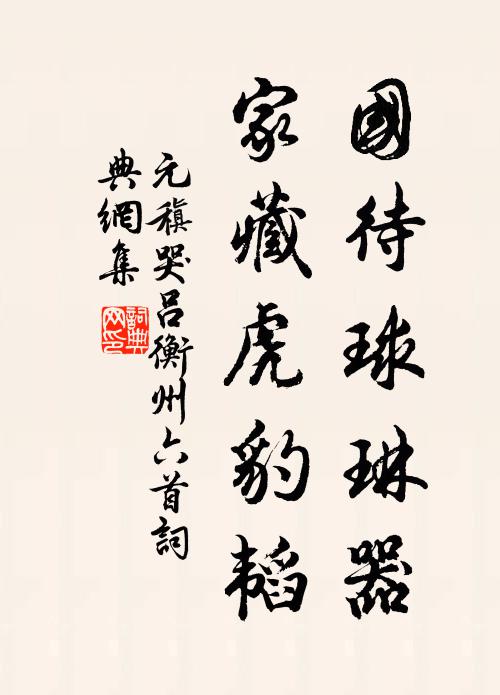 國待球琳器
家藏虎豹韬
元稹哭呂衡州六首詞
典網集
詞典
网印